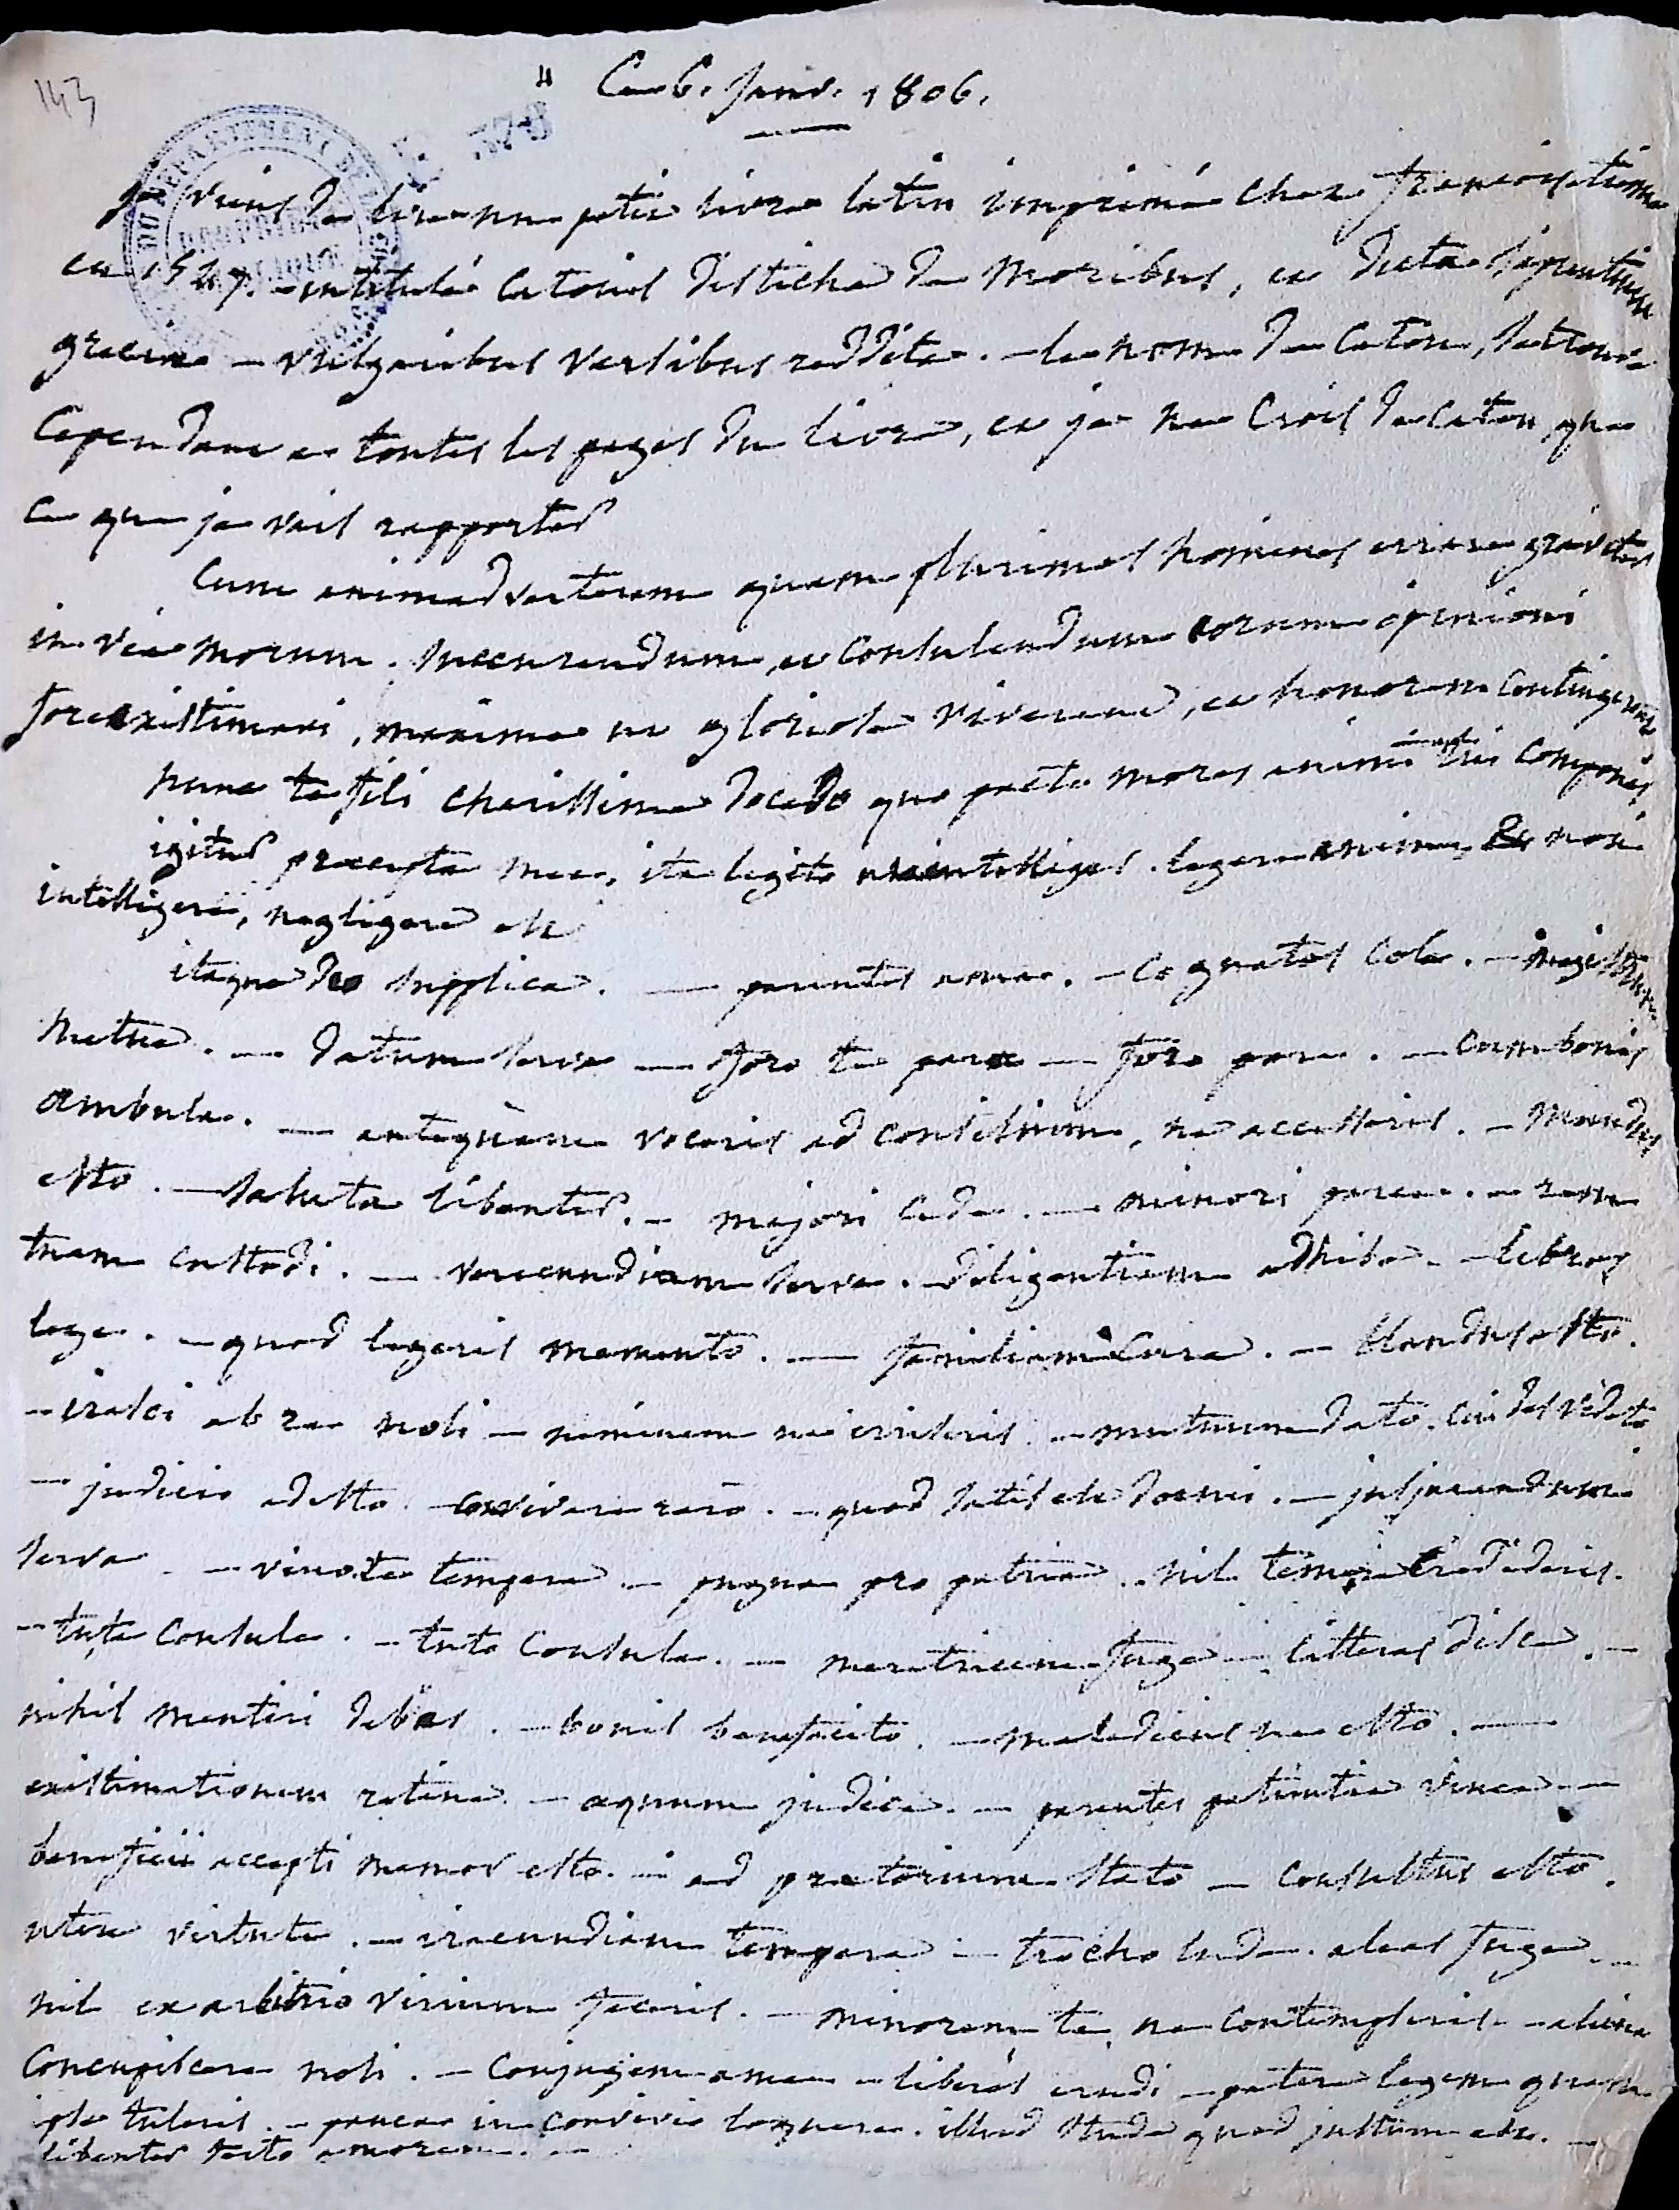 143
Ce 6. Janv. 1806.
je viens de lire un petit livre latin imprimé chez françois etienne
en 1547. intitulé Catonis disticha de Moribus, et dicta sapientum
graeciae vulgaribus versibus reddita. - le nom de Caton, se trouve
Cependant a toutes les pages du livre, et je ne Crois de Caton que
ce que je vais rapporter
Cum animadverterem quam plurimos homines errare graviter
in via morum. succurendum, et Consulendum eorum opinioni
fore existimavi, maxime ut gloriose viverent, et honorem Contingerent
nunc te fili charissime docebo quo pacto mores animi tui Componas
igitur praecepta mea, ita legito ut intelligas. legere enim, et non
intelligere, negligere est
itaque deo supplica. — parentes ama. - Cognatos Cole. - magistrum
metue. — datum serva — foro te para — foro pare. - Cum bonis
ambula. — antequam voceris ad Consilium, ne accesseris. - Mundus
esto. — Saluta libenter. - majori Cede. — minori parce. - rem
tuam Custodi. — verecundiam serva. - diligentiam adhibe. - libros
lege. - quod legeris memento. — familiam Cura. - blandus esto.
- irasci ab re noli - neminem ne irriseris. - mutuum dato. Cui des videto
— judicio adesto - Convivare raro. - quod satis est dormi. - jusjurandum
serva. - vino te tempera. - pugna pro patria. - nil temere Credideris.
- tute Consule. - tuto Consule. — meretricem fuge - litteras disce. -
nihil mentiri debes. - bonis benefacito. - maledicus ne esto. —
existimationem retine. - aequum judica. - parentes patientia vince. -
beneficii accepti memor esto. - ad praetorium stato - Consultus esto.
utere virtute. - iracundiam tempera - trocho lude. aleas fuge. -
nil ex arbitrio virium feceris. - minorem te ne Contempseris. - aliena
Concupiscere noli. - Conjugem ama - liberos erudi - patere legem quam
ipse tuleris. - pauca in Convivio loquere. illud stude quod justum est. -
libenter ferto amorem. -